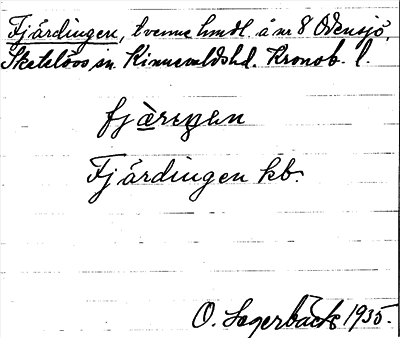 Fjärdingen, tvenne hmdl. å nr 8 Odensjö,
Skatelövs sn. Kinnevaldshd. Kronob. l.
fjäreŋen
Fjärdingen kb.
O. Sagerbäck 1935.